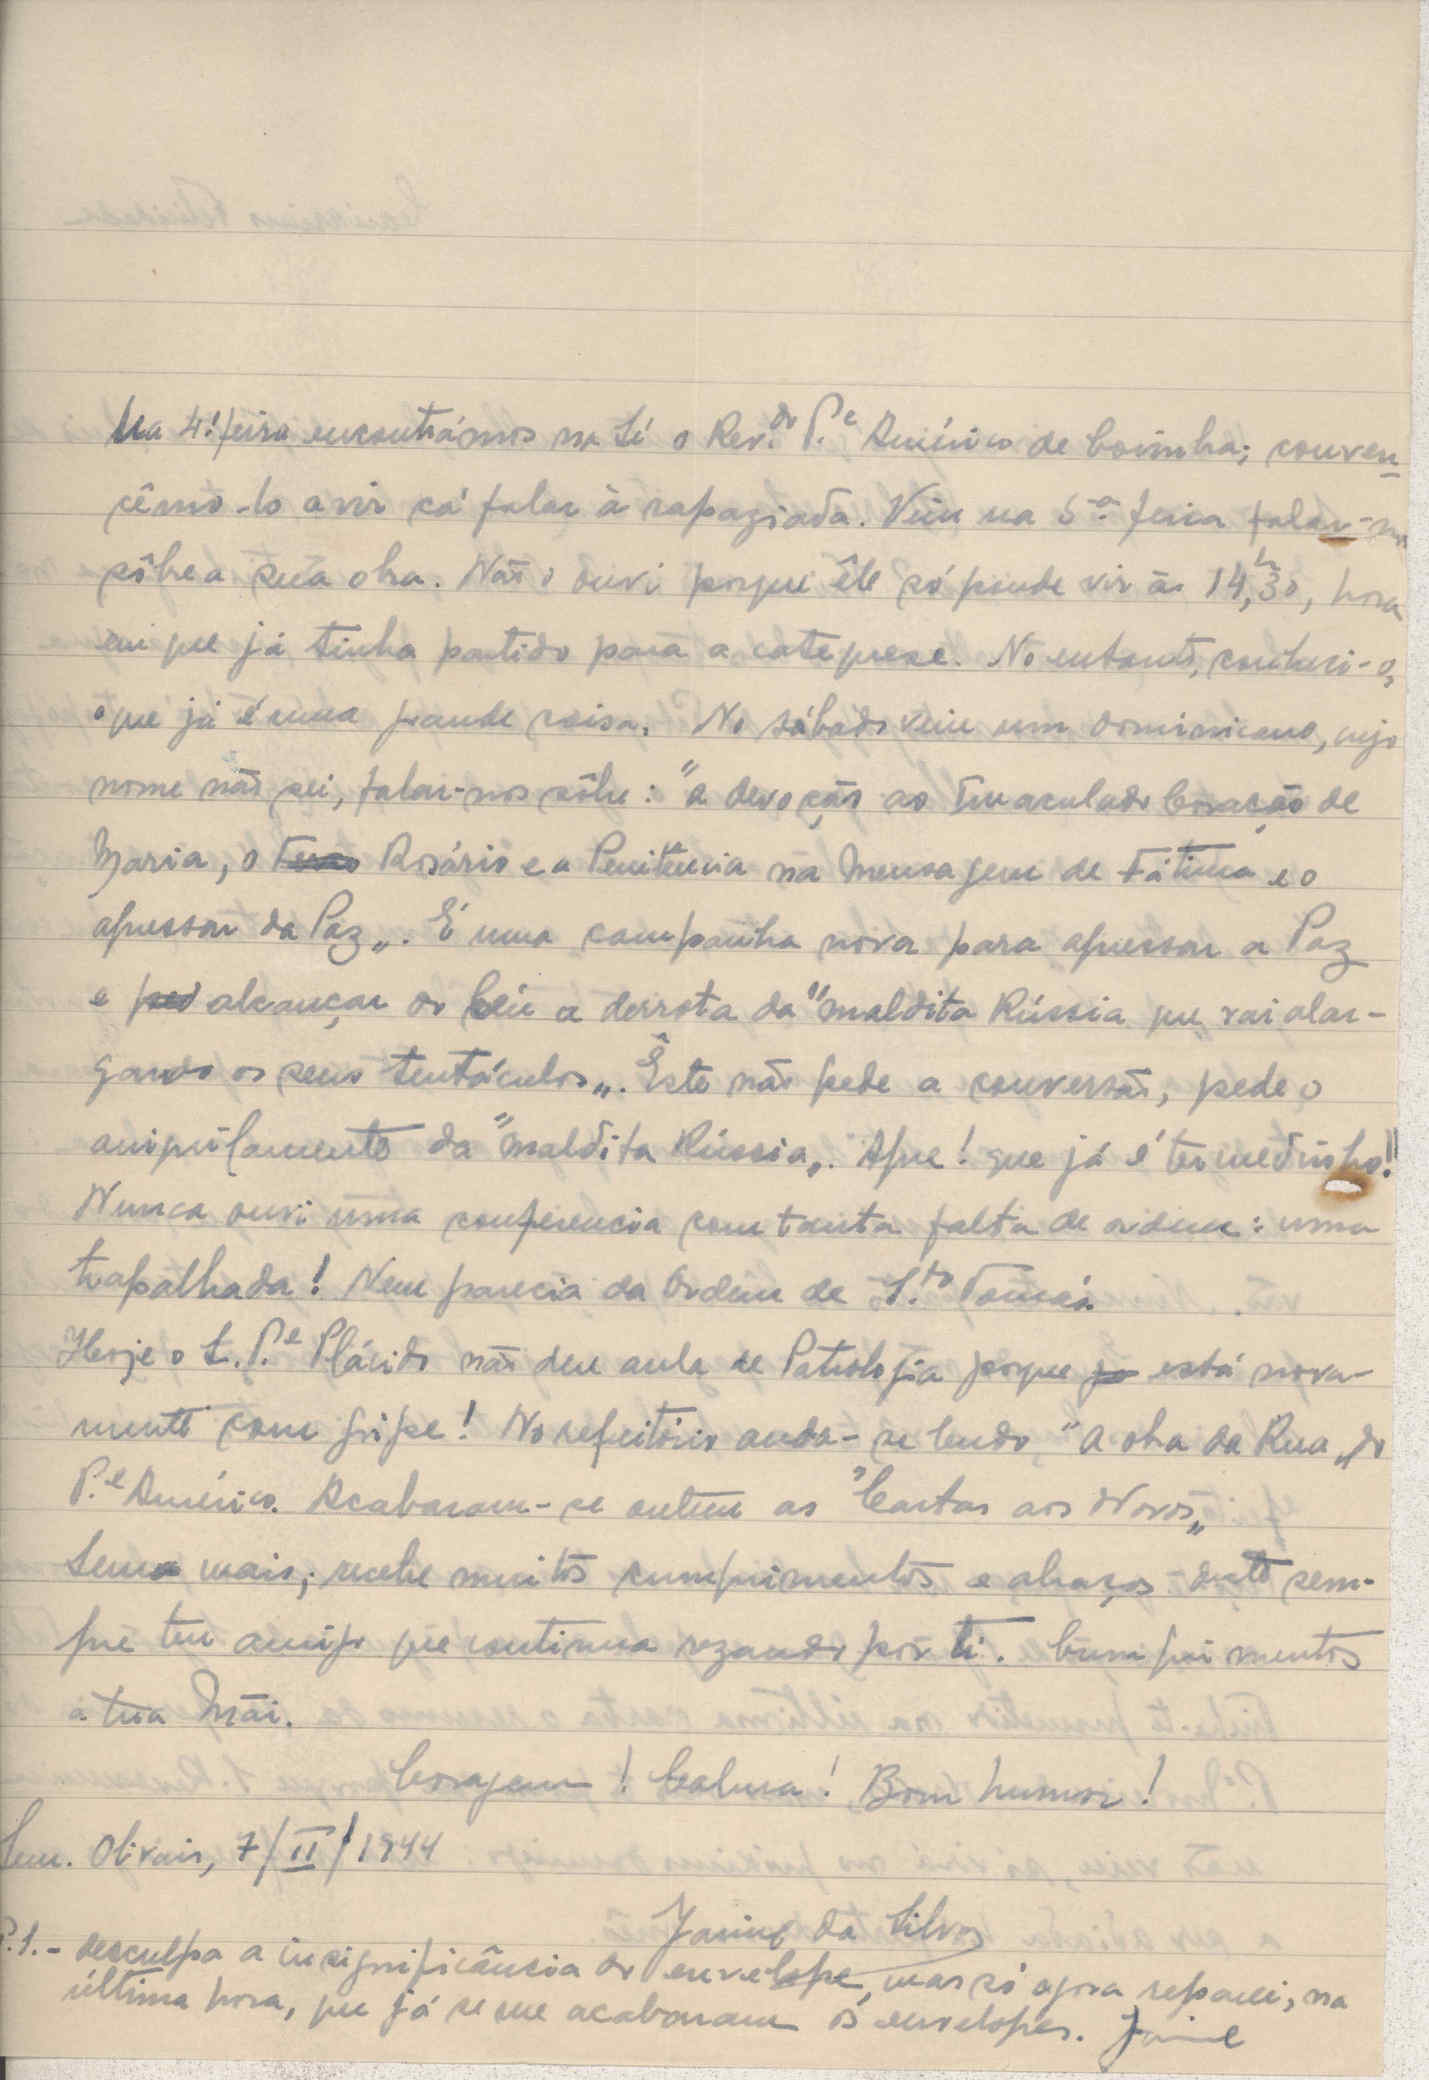 Na 4.ª feira encontrámos na Sé o Rev.do P.e Américo de Coimbra; conven
cêmo-lo a vir cá falar à rapaziada. Veiu na 5.ª feira falar-nos
sôbre a sua obra. Não o ouvi porque êle só poude vir às 14,h30, hora
em que já tinha partido para a catequese. No entanto, conheci-o,
o que já é uma grande coisa. No sábado veiu um dominicano, cujo
nome não sei, falar-nos sôbre: "a devoção ao Imaculado Coração de
Maria, o Rosário e a Penitência na Mensagem de Fátima e o
apressar da Paz„. É uma campanha nova para apressar a Paz
e ped alcançar do Céu a derrota da "maldita Rússia que vai alar-
gando os seus tentáculos„. Êste não pede a conversão, pede o
aniquilamento da "maldita Rússia„. Apre! que já é ter medinho!!
Nunca ouvi uma conferencia com tanta falta de ordem: uma
trapalhada! Nem parecia da Ordem de S.to Tomás.
Hoje o S. P.e Plácido não deu aula de Patrologia porque está nova-
mente com gripe! No refeitório anda-se lendo, "a obra da Rua„ do
P.e Américo. Acabaram-se ontem as "Cartas aos Novos„
Sem mais; recebe muitos cumprimentos e abraços dêste sem-
pre teu amigo que continua rezando por ti. Cumprimentos
a tua Mãi.
Coragem! Calma! Bom humor!
Sem. Olivais, 7/II/1944
Jaime da Silva
P.S.- desculpa a insignificância do envelope, mas só agora reparei, na
última hora, que já se me acabaram os envelopes. Jaime